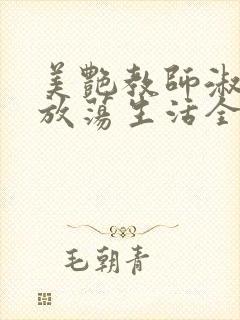 美艷教師淑
放蕩生活全
毛朝青